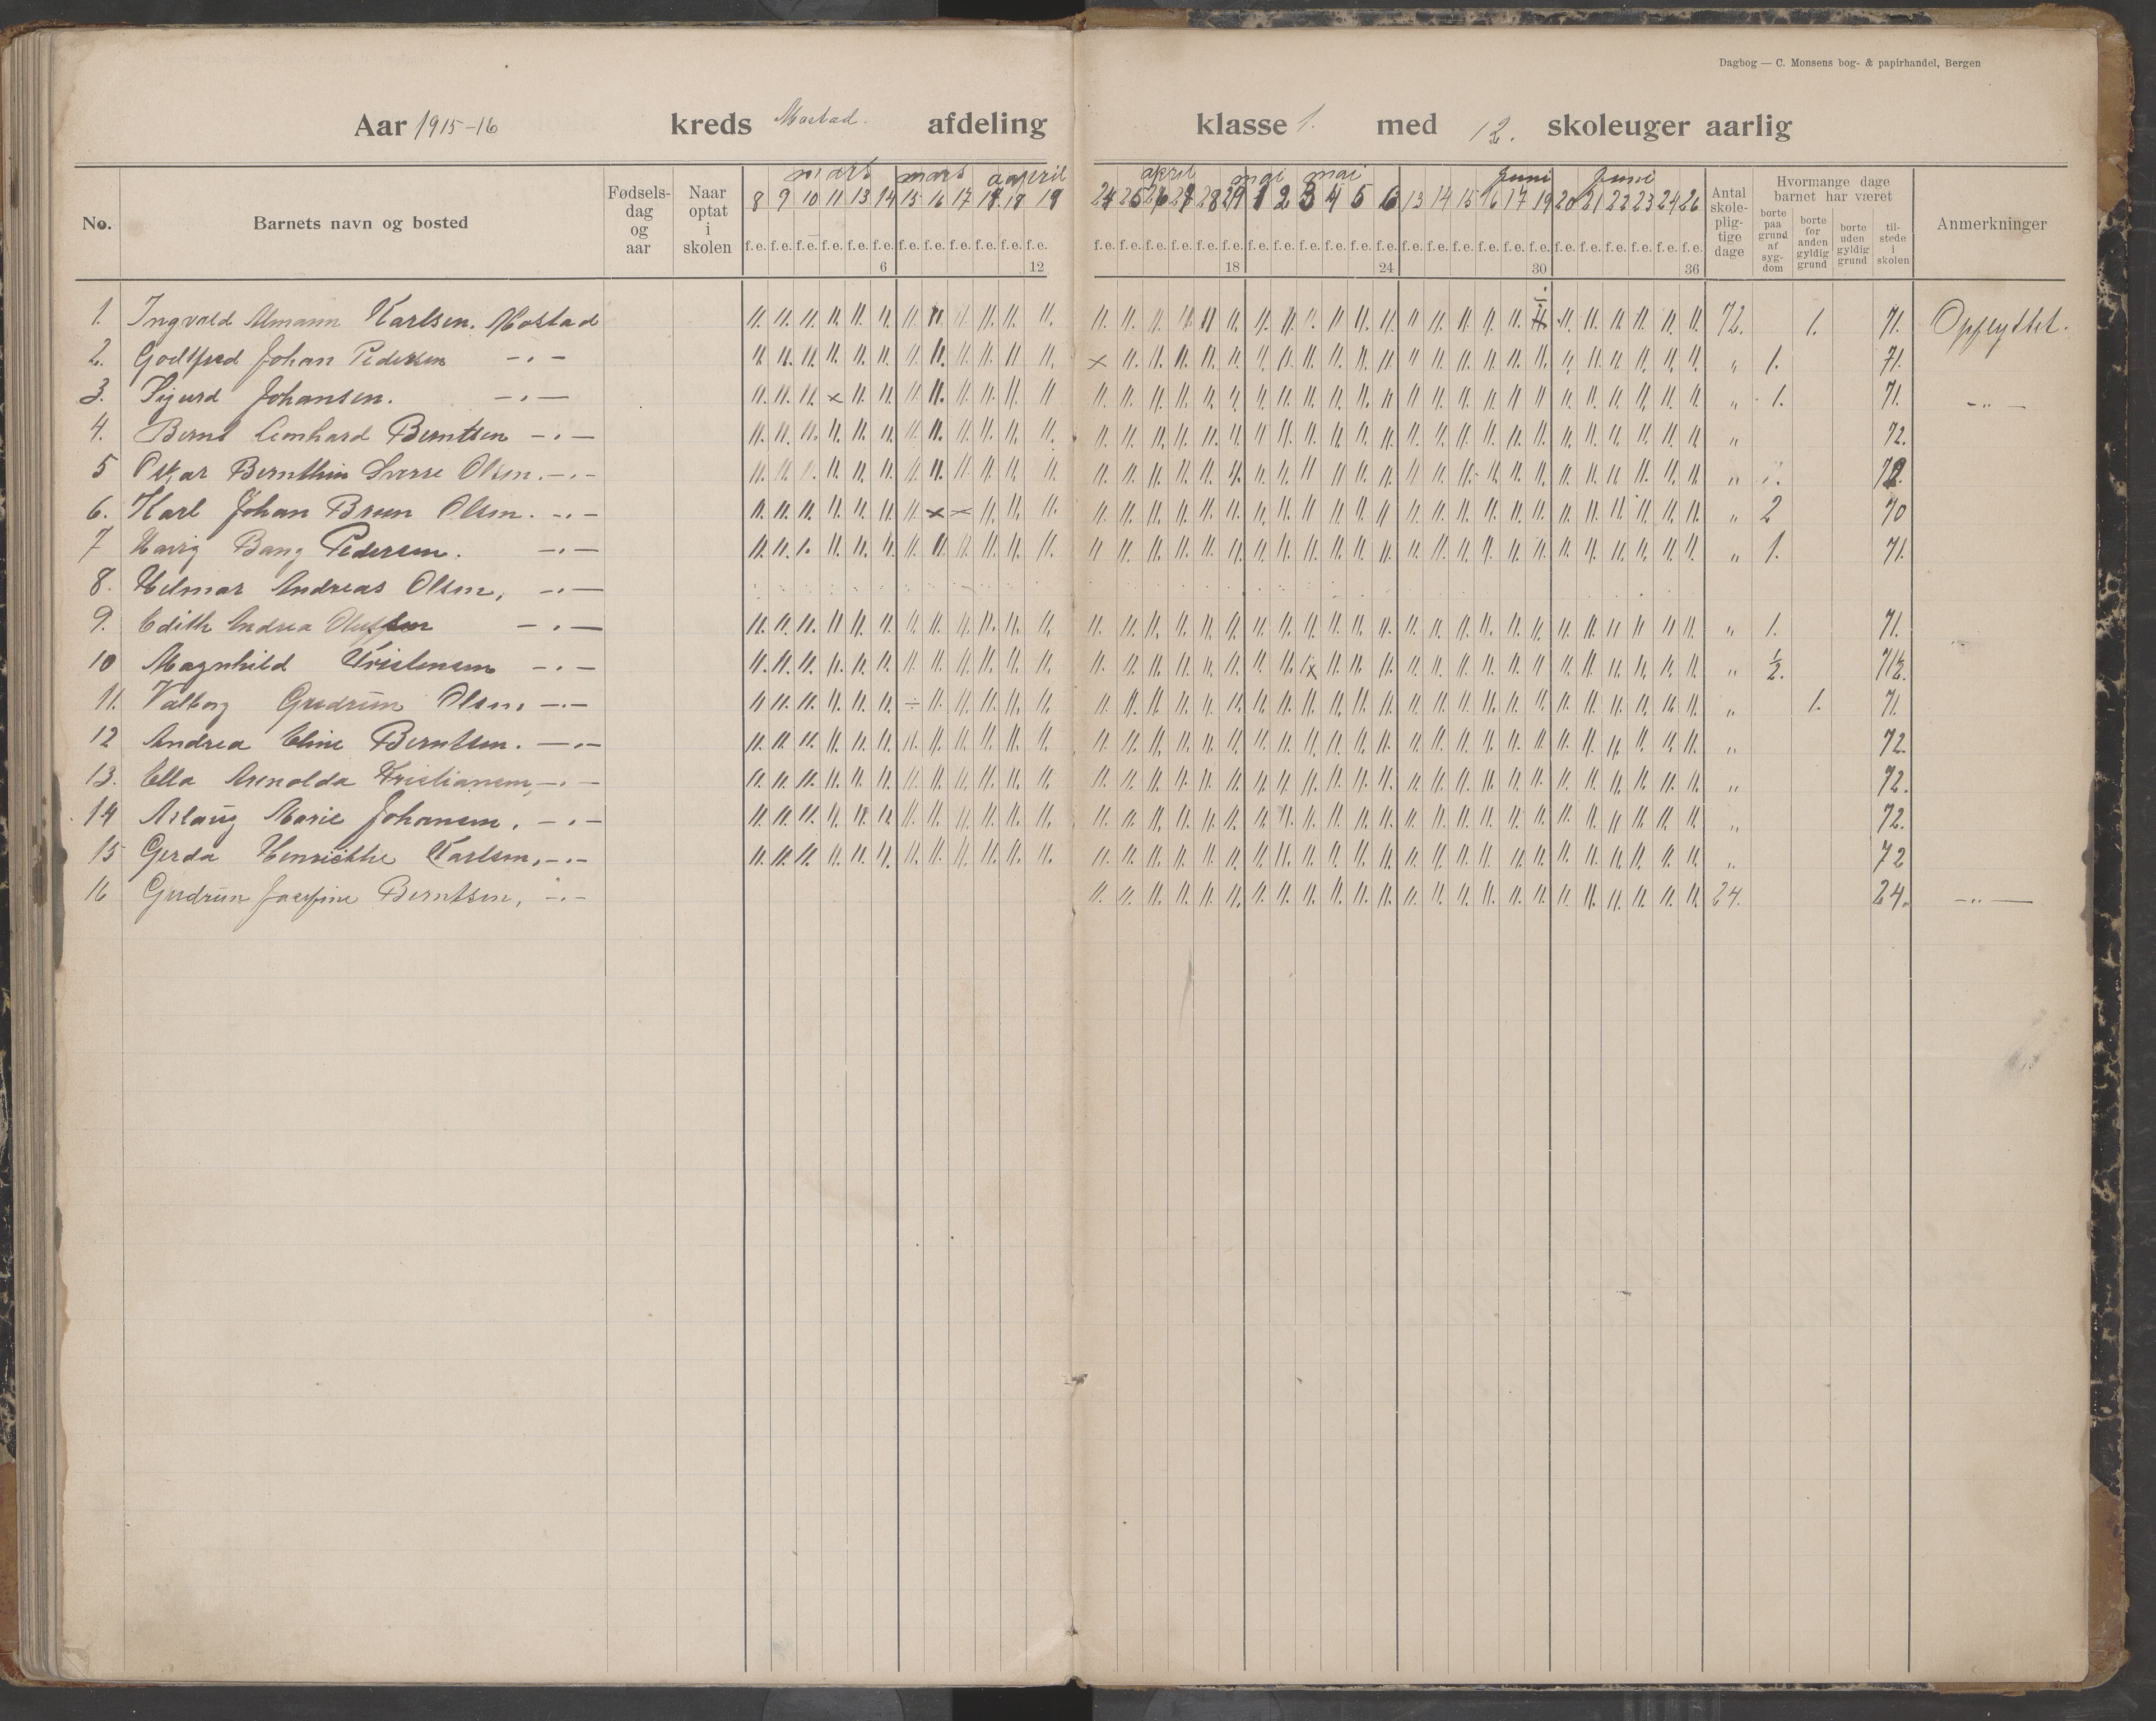 Dagbog — C. Monsens bog- & papirhandel, Bergen
Aar 1915-16 kreds Mostad. afdeling klasse 1. med 12. skoleuger aarlig
mars mars april april mai mai Juni Juni
No. Barnets navn og bosted Fødselsdag og aar Naar optat i skolen
8 9 10 11 13 14 15 16 17 17 18 19 24 25 26 27 28 29 1 2 3 4 5 6 13 14 15 16 17 19 20 21 22 23 24 26
f.e. f.e. f.e. f.e. f.e. f.e. f.e. f.e. f.e. f.e. f.e. f.e. f.e. f.e. f.e. f.e. f.e. f.e. f.e. f.e. f.e. f.e. f.e. f.e. f.e. f.e. f.e. f.e. f.e. f.e. f.e. f.e. f.e. f.e. f.e. f.e.
6 12 18 24 30 36
Antal skole-plig-tige dage
Hvormange dage barnet har været
borte paa grund af syg-dom
borte for anden gyldig grund
borte uden gyldig grund
til-stede i skolen
Anmerkninger
1. Ingvald Almann Karlsen. Mostad 72. 1. 71. Opflyttet.
2. Godtfred Johan Pedersen -.- " 1. 71.
3. Sigurd Johansen. -.- " 1. 71. -"-
4. Bernt Leonhard Berntsen -.- " 72.
5 Oskar Bernthin Sverre Olsen. -.- " 72.
6. Karl Johan Bruun Olsen. -.- " 2 70
7 Harry Bang Pedersen. -.- " 1. 71.
8. Hilmar Andreas Olsen, -.-
9. Edith Andrea Olufsen -.- " 1. 71.
10 Magnhild Kristensen -.- " 1/2. 71 1/2.
11. Valborg Gudrun Olsen, -.- " 1. 71
12 Andrea Eline Berntsen. -.- " 72.
13. Ella Arnolda Kristiansen, -.- " 72.
14 Aslaug Marie Johansen. -.- " 72.
15 Gerda Henriette Karlsen, -.- " 72
16 Gudrun Josefine Berntsen, -.- 24. 24. -"-